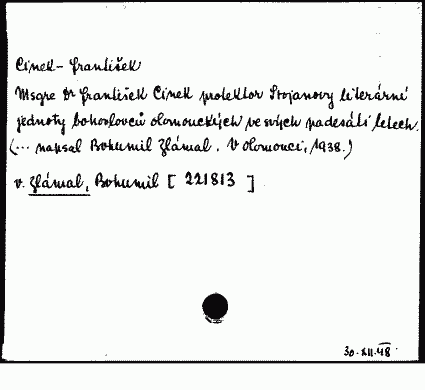 Cinek - František
Msgre Dr František Cinek protektor Stojanovy literární
jednoty bohoslovců olomouckých ve svých padesáti letech.
(... napsal Bohumil Zlámal. V Olomouci, 1938.)
v. Zlámal, Bohumil [ 221813 ]
30. XII. 48